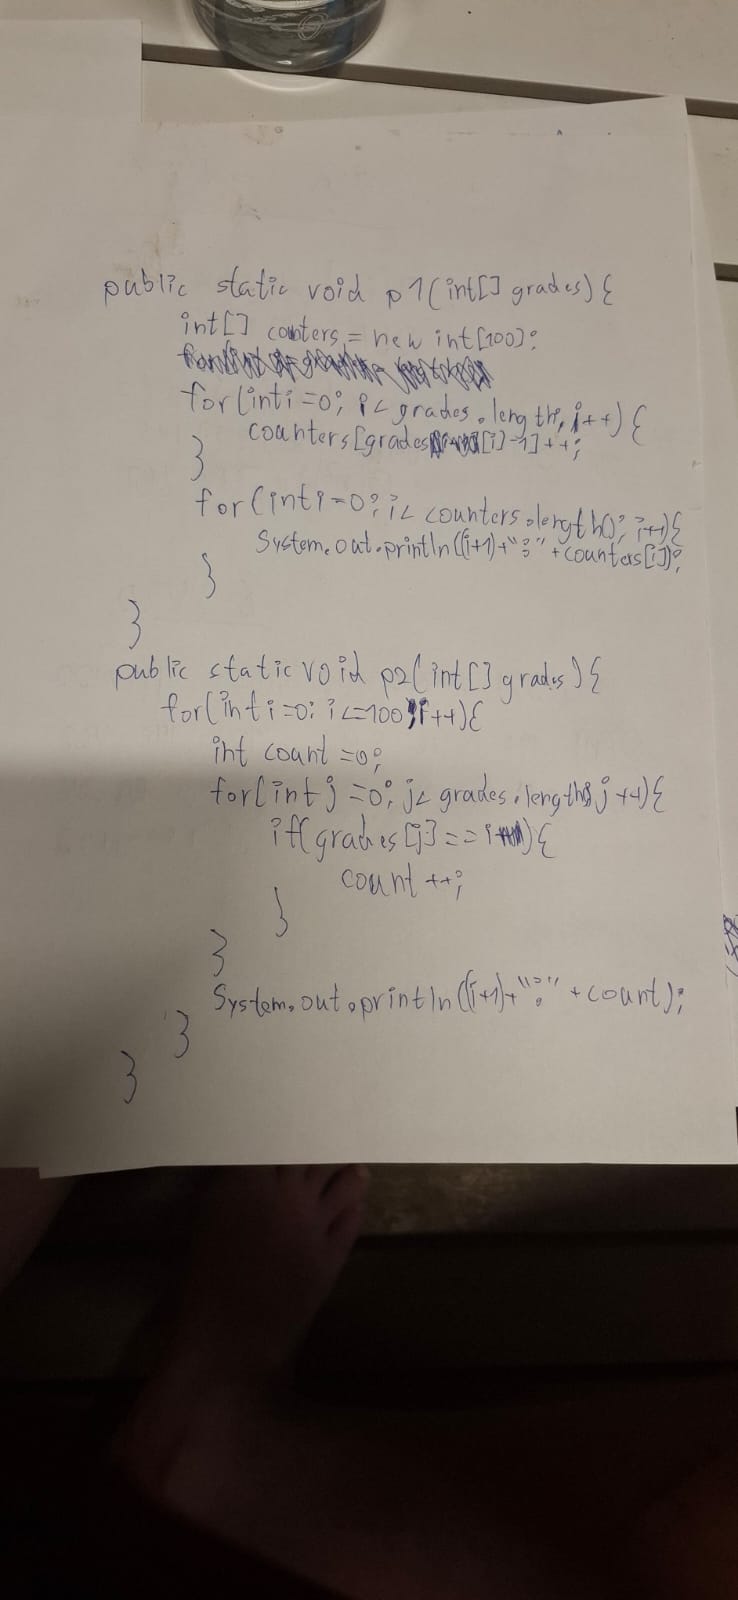 public static void p1(int[] grades){
int[] counters = new int[100];
for(int i=0; i< grades.length; i++) {
counters[grades[i]-1]++;
}
for(int i=0; i< counters.length(); i++){
System.out.println((i+1)+":"+counters[i]);
}
}
public static void p2(int[] grades){
for(int i=0; i<=100; i++){
int count =0;
for(int j=0; j< grades.length; j++){
if(grades[j]==i){
count++;
}
}
System.out.println((i+1)+":"+count);
}
}